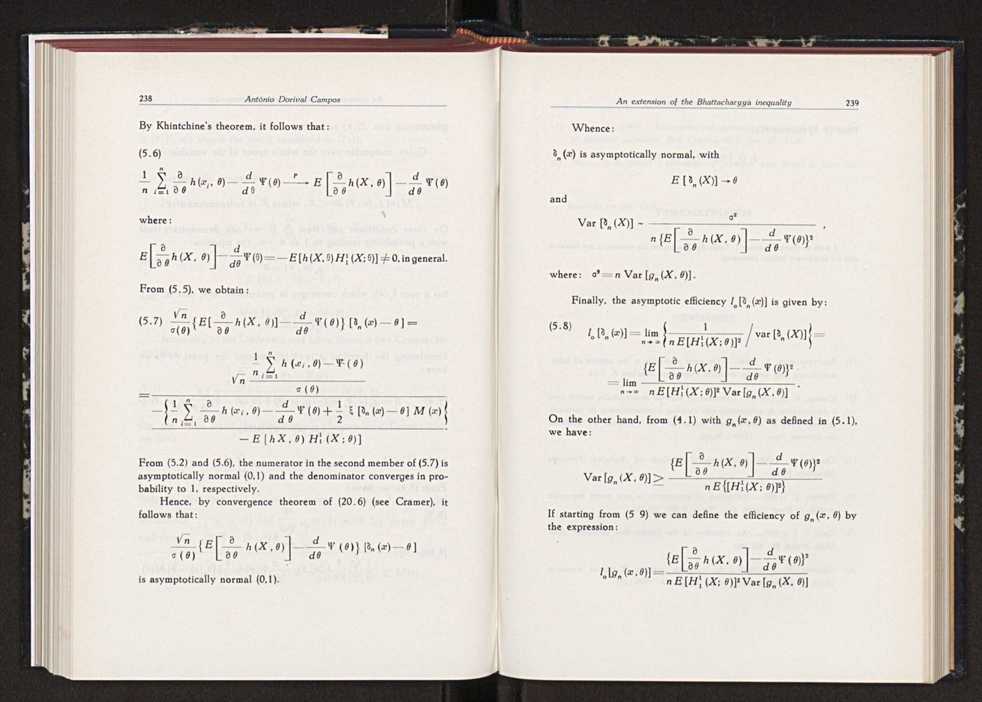 238 António Dorival Campos
By Khintchine's theorem, it follows that:
(5.6)
\frac{1}{n} \sum_{i=1}^{n} \frac{∂}{∂θ} h(x_i, θ) — \frac{d}{dθ} Ψ(θ) \xrightarrow{P} E [\frac{∂}{∂θ} h(X, θ)] — \frac{d}{dθ} Ψ(θ)
where:
E [\frac{∂}{∂θ} h(X, θ)] — \frac{d}{dθ} Ψ(θ) = — E[h(X, θ) H_1^1(X; θ)] ≠ 0, in general.
From (5.5), we obtain:
(5.7) \frac{\sqrt{n}}{σ(θ)} {E[\frac{∂}{∂θ} h(X, θ)] — \frac{d}{dθ} Ψ(θ)} [δ_n(x) — θ] =
= \frac{\sqrt{n} \frac{\frac{1}{n} \sum_{i=1}^{n} h(x_i, θ) — Ψ(θ)}{σ(θ)}}{\frac{—{\frac{1}{n} \sum_{i=1}^{n} \frac{∂}{∂θ} h(x_i, θ) — \frac{d}{dθ} Ψ(θ) + \frac{1}{2} ξ [δ_n(x) — θ] M(x)}}{— E [hX, θ) H_1^1(X; θ)]}}
From (5.2) and (5.6), the numerator in the second member of (5.7) is
asymptotically normal (0,1) and the denominator converges in pro-
bability to 1, respectively.
Hence, by convergence theorem of (20.6) (see Cramer), it
follows that:
\frac{\sqrt{n}}{σ(θ)} {E [\frac{∂}{∂θ} h(X, θ)] — \frac{d}{dθ} Ψ(θ)} [δ_n(x) — θ]
is asymptotically normal (0,1).
An extension of the Bhattacharyya inequality 239
Whence:
δ_n(x) is asymptotically normal, with
E [δ_n(X)] → θ
and
Var [δ_n(X)] ~ \frac{σ²}{n {E[\frac{∂}{∂θ} h(X, θ)] — \frac{d}{dθ} Ψ(θ)}²},
where: σ² = n Var [g_n(X, θ)].
Finally, the asymptotic efficiency l_o[δ_n(x)] is given by:
(5.8) l_o[δ_n(x)] = \lim_{n→∞} {\frac{1}{n E[H_1^1(X; θ)]²} / var [δ_n(X)]} =
= \lim_{n→∞} \frac{{E[\frac{∂}{∂θ} h(X, θ)] — \frac{d}{dθ} Ψ(θ)}²}{n E[H_1^1(X; θ)]² Var [g_n(X, θ)]}.
On the other hand, from (4.1) with g_n(x, θ) as defined in (5.1),
we have:
Var [g_n(X, θ)] ≥ \frac{{E[\frac{∂}{∂θ} h(X, θ)] — \frac{d}{dθ} Ψ(θ)}²}{n E{[H_1^1(X; θ)]²}}
If starting from (5 9) we can define the efficiency of g_n(x, θ) by
the expression:
l_o[g_n(x, θ)] = \frac{{E[\frac{∂}{∂θ} h(X, θ)] — \frac{d}{dθ} Ψ(θ)}²}{n E[H_1^1(X; θ)]² Var [g_n(X, θ)]}